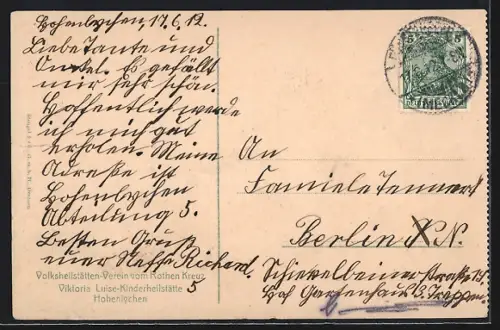 Hohenlychen, 17.6.12.
Liebe Tante und
Onkel. Es gefällt
mir sehr schön.
Hoffentlich werde
ich mich gut
erholen. Meine
Adreße ist
Hohenlychen
Abteilung 5.
Besten Gruß
euer Neffe Richard.
Volksheilstätten-Verein vom Rothen Kreuz
Viktoria Luise-Kinderheilstätte
Hohenlychen
5
5 5
An
Familie Tennert
Berlin N.
Schievelbeiner straße 15
Hof Gartenhaus 3. Treppen